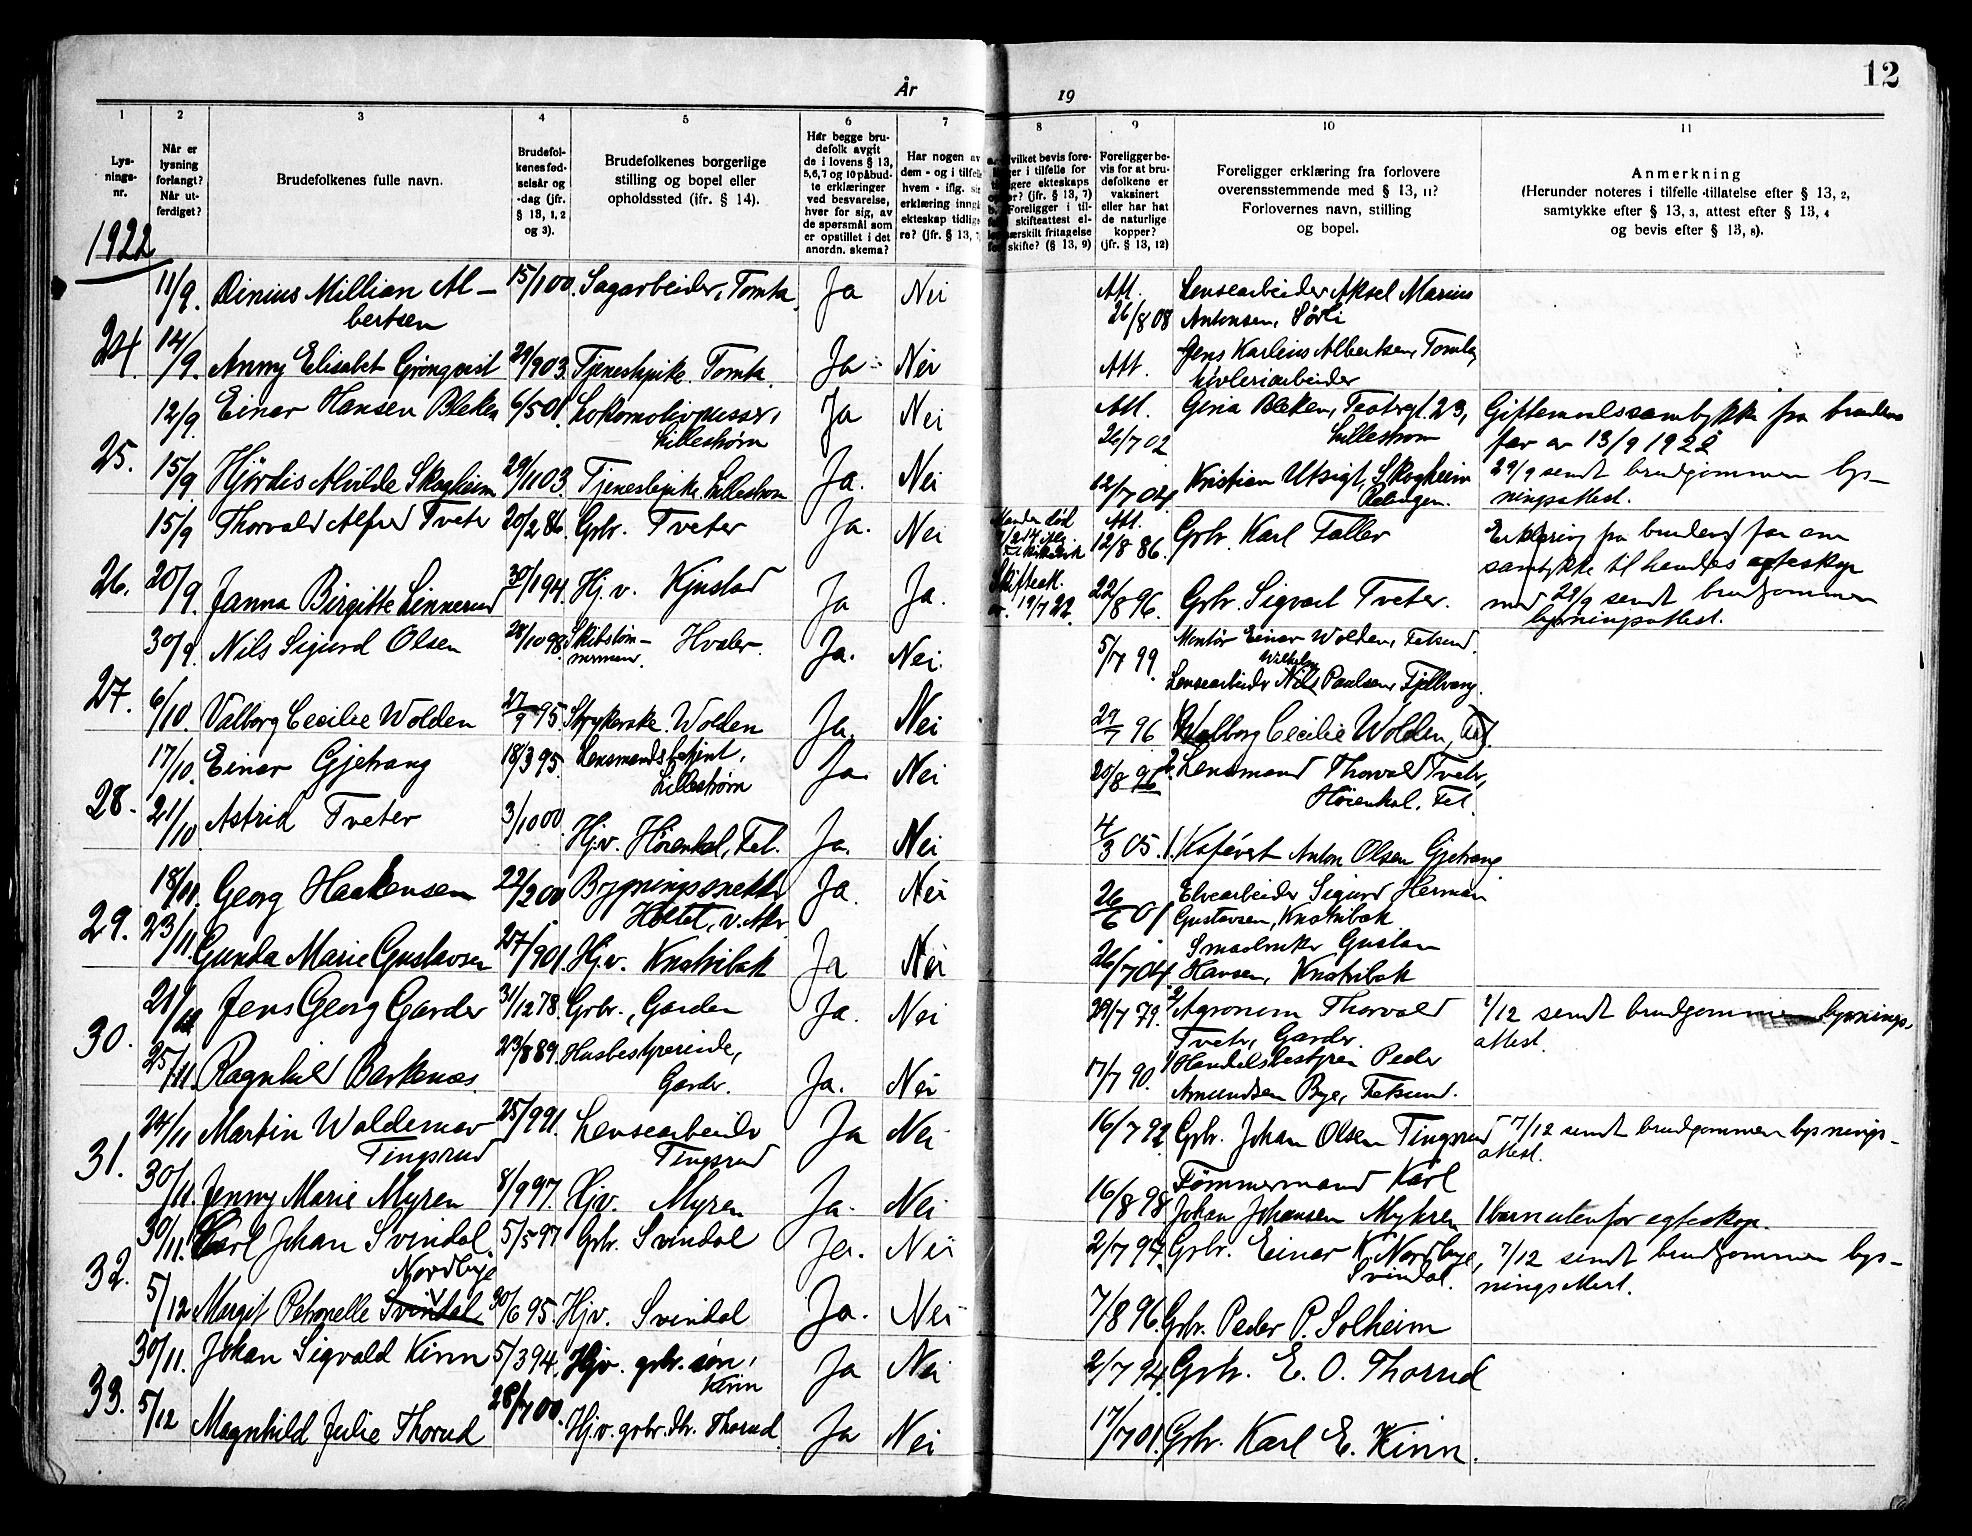 12
År
19
1
2
3
4
5
6
7
8
9
10
11
Lys-
nings-
nr.
Når er
lysning
forlangt?
Når ut-
ferdiget?
Brudefolkenes fulle navn.
Brudefol-
kenes fød-
selsår og
-dag (jfr.
§ 13, 1, 2
og 3).
Brudefolkenes borgerlige
stilling og bopel eller
opholdssted (ifr. § 14).
Har begge bru-
defolk avgit
de i lovens § 13,
5, 6, 7 og 10 påbud-
te erklæringer
ved besvarelse,
hver for sig, av
de spørsmål som
er opstillet i det
anordn. skema?
Har nogen av
dem - og i tilfelle
hvem - iflg. sin
erklæring inngå
ekteskap tidlige
re? (jfr. § 13, 7
vilket bevis fore-
ger i tilfelle for
igere ekteskaps
r? (jfr. § 13, 7)
Foreligger i til-
skifteattest el-
ærskilt fritagelse
skifte? (§ 13, 9)
Foreligger be-
vis for at bru-
defolkene er
vaksinert
eller har hat
de naturlige
kopper?
(jfr. § 13, 12)
Foreligger erklæring fra forlovere
overensstemmende med § 13, 11?
Forlovernes navn, stilling
og bopel.
Anmerkning
(Herunder noteres i tilfelle tillatelse efter § 13, 2,
samtykke efter § 13, 3, attest efter § 13, 4
og bevis efter § 13, 8).
1922
11/9. Dinius Millian Al- 15/1 00. Sagarbeider, Tomta Ja Nei Att. Lensearbeider Aksel Marius
bertsen 26/8 08 Antonsen, Sørli
24. 14/9. Anny Elisabet Grönqvist 29/9 03. Tjenestepike. Tomta. Ja Nei Att. Jens Karlius Albertsen, Tomta,
høvleriarbeider
12/9. Einar Hansen Bleken 6/5 01. Lokomotivpusser, Ja Nei Att. Gina Bleken, Teatergt. 23, Giftemaalssamtykke fra brudens
Lillestrøm 26/7 02 Lillestrøm far av 13/9 1922
25. 15/9. Hjördis Alvilde Skogheim 29/11 03. Tjenestepike. Lillestrøm Ja. Nei 12/7 04. Kristian Utsigt, Skogheim 29/9 sendt brudgommen lys-
ningsattest.
15/9 Thorvald Alfred Tveter 20/2 86. Grbr. Tveter Ja. Nei Att. 12/8 86. Grbr. Karl Faller Erklæring fra brudens far om
samtykke til hendes egteskap
26. 20/9. Janna Birgitte Linnerud 30/1 94. Hj. v. Kjustad Ja Ja. Skifteat. av 19/7 22. 22/8 96. Grbr. Sigvart Tveter. med 29/9 sendt brudgommen
lysningsattest.
30/9. Nils Sigurd Olsen 28/10 98. Skibstøm- Hvaler. Ja. Nei. 5/7 99. Montör Einar Wolden, Fetsund.
mermand. Lensearbeider Nils Wilhelm Paulsen, Fjellvang.
27. 6/10. Valborg Cecilie Wolden 27/9 95. Strykerske. Wolden Ja. Nei 29/7 96 Valborg Cecilie Wolden, Fet.
17/10. Einar Gjetrang 18/3 95. Lensmandsbetjent, Ja Nei 20/8 96 2. Lensmand Thorvald Tveter,
Lillestrøm Høienhal. Fet.
28. 21/10. Astrid Tveter 3/10 00. Hj.v. Høienhal, Fet. Ja. Nei 4/3 05. 1. Kafévert Anton Olsen Gjetrang
18/11. Georg Haakensen 22/2 00 Bygningssnekker Ja. Nei 26/6 01 Elvearbeider Sigurd Herman
Holtet, v. Aker. Gustavsen, Knatribak
29. 23/11. Gunda Marie Gustavsen 27/9 01. Hj.v. Knatribak Ja Nei 26/7 04. Smaabruker Gustav
Hansen, Knatribak
21/11 Jens Georg Garder 31/12 78. Grbr., Garder Ja. Nei 29/7 79. 2/ Agronom Thorvald 1/12 sendt brudgommen lysnings-
Tveter, Garder. attest.
30. 25/11. Ragnhild Barkenæs 23/8 89. Husbestyrerinde, Ja. Nei 17/7 90. 1/ Handelsbestyrer Peder
Garder. Amundsen Bye, Fetsund.
24/11 Martin Waldemar 25/9 91. Lensearbeider Ja Nei 16/7 92. Grbr. Johan Olsen Tingsrud 7/12 sendt brudgommen lysnings-
Tingsrud Tingsrud attest.
31. 30/11. Jenny Marie Myren 8/9 97. Hj.v. Myren Ja. Nei 16/8 98 Tömmermand Karl
Johan Johansen Myhren 1 barn utenfor egteskap.
30/11. Carl Johan Svindal 5/5 97 Grbr. Svindal Ja. Nei 2/7 97. Grbr. Einar K. Nordbye, 7/12 sendt brudgommen lys-
Nordbye Svindal. ningsattest.
32. 5/12 Margit Petronelle Svindal 30/6 95. Hj.v. Svindal Ja. Nei 7/8 96. Grbr. Peder P. Solheim
30/11. Johan Sigvald Kinn 5/3 94. Hjv. grbr. søn, Ja Nei 2/7 94. Grbr. E. O. Thorud
Kinn
33. 5/12 Magnhild Julie Thorud 28/7 00. Hj.v. grbr. dtr. Thorud. Ja Nei 17/7 01. Grbr. Karl E. Kinn.